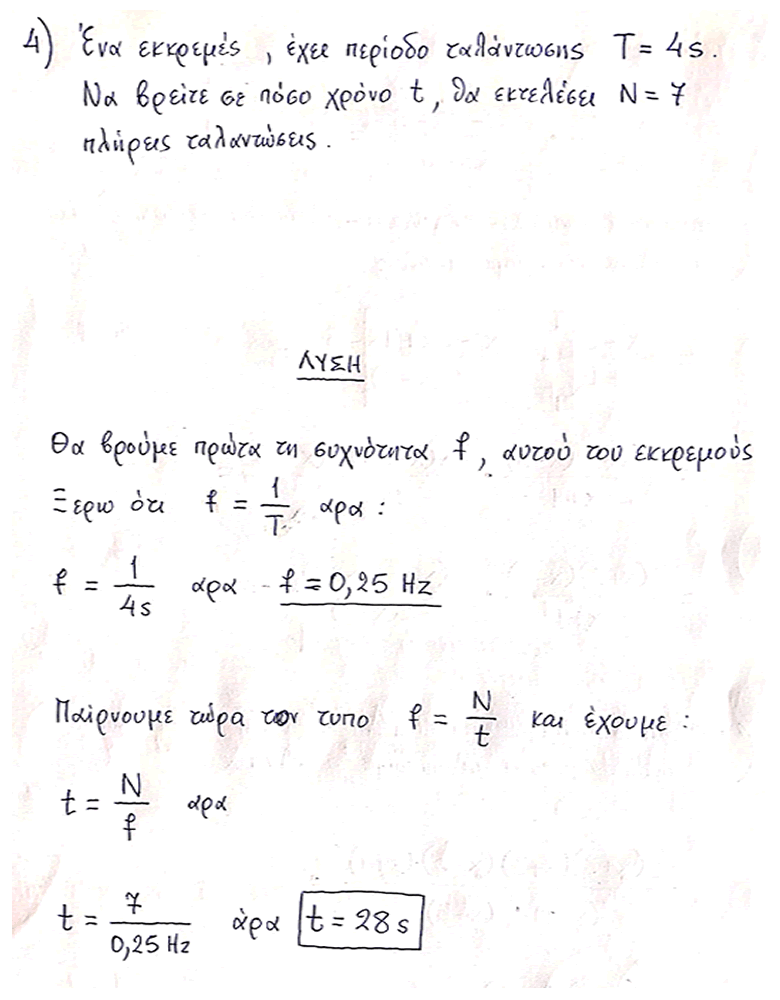 4) Ένα εκκρεμές , έχει περίοδο ταλάντωσης T = 4s.
Να βρείτε σε πόσο χρόνο t , θα εκτελέσει N = 7
πλήρεις ταλαντώσεις .
ΛΥΣΗ
Θα βρούμε πρώτα τη συχνότητα f , αυτού του εκκρεμούς
Ξερω ότι f = 1/T αρα :
f = 1/4s αρα f = 0,25 Hz
Παίρνουμε τώρα τον τυπο f = N/t και έχουμε :
t = N/f αρα
t = 7/0,25 Hz άρα t = 28 s